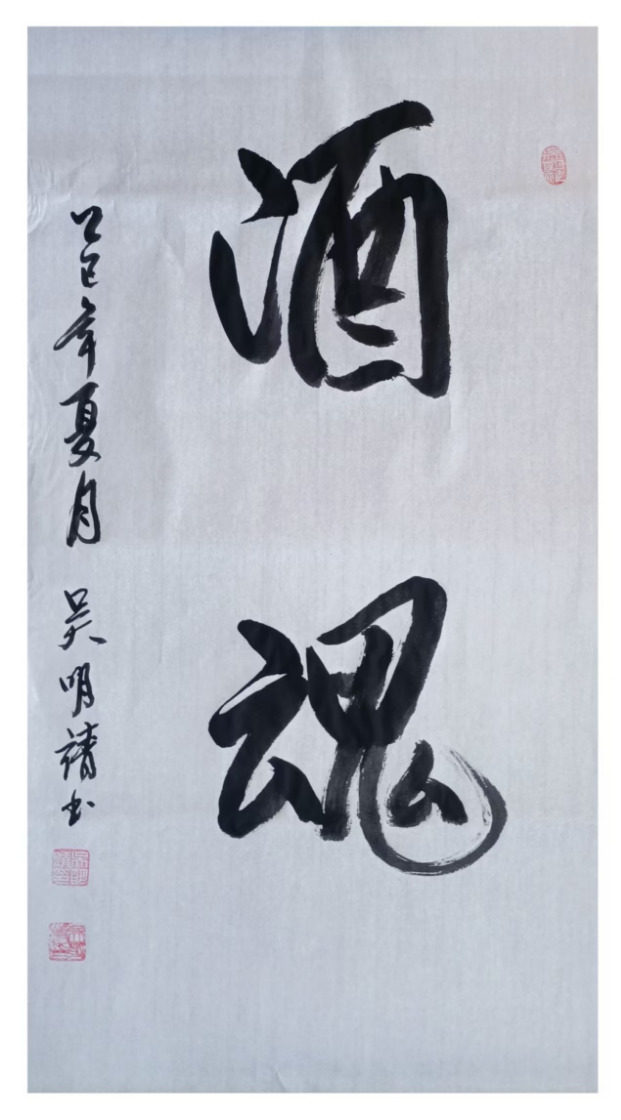 酒魂
乙巳年夏月 吴明靖书